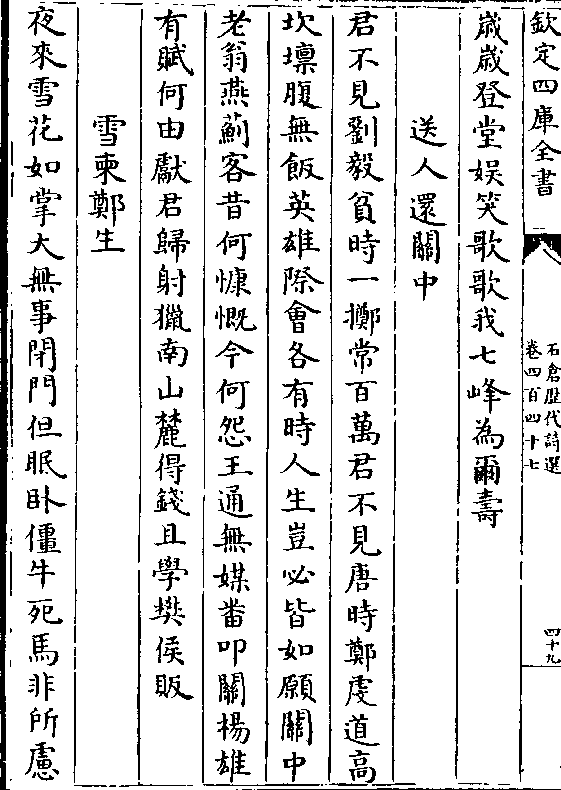 欽定四庫全書
石倉歴代詩選
卷四百四十七
四十九
嵗嵗登堂娱笑歌歌我七峰為爾壽
送人還關中
君不見劉毅貧時一擲常百萬君不見唐時鄭䖍道高
坎壈腹無飯英雄際會各有時人生豈必皆如願關中
老翁燕薊客昔何慷慨今何怨王通無媒畨叩關楊雄
有賦何由獻君歸射獵南山麓得錢且學樊侯販
雪柬鄭生
夜來雪花如掌大無事閉門但眠卧僵牛死馬非所慮